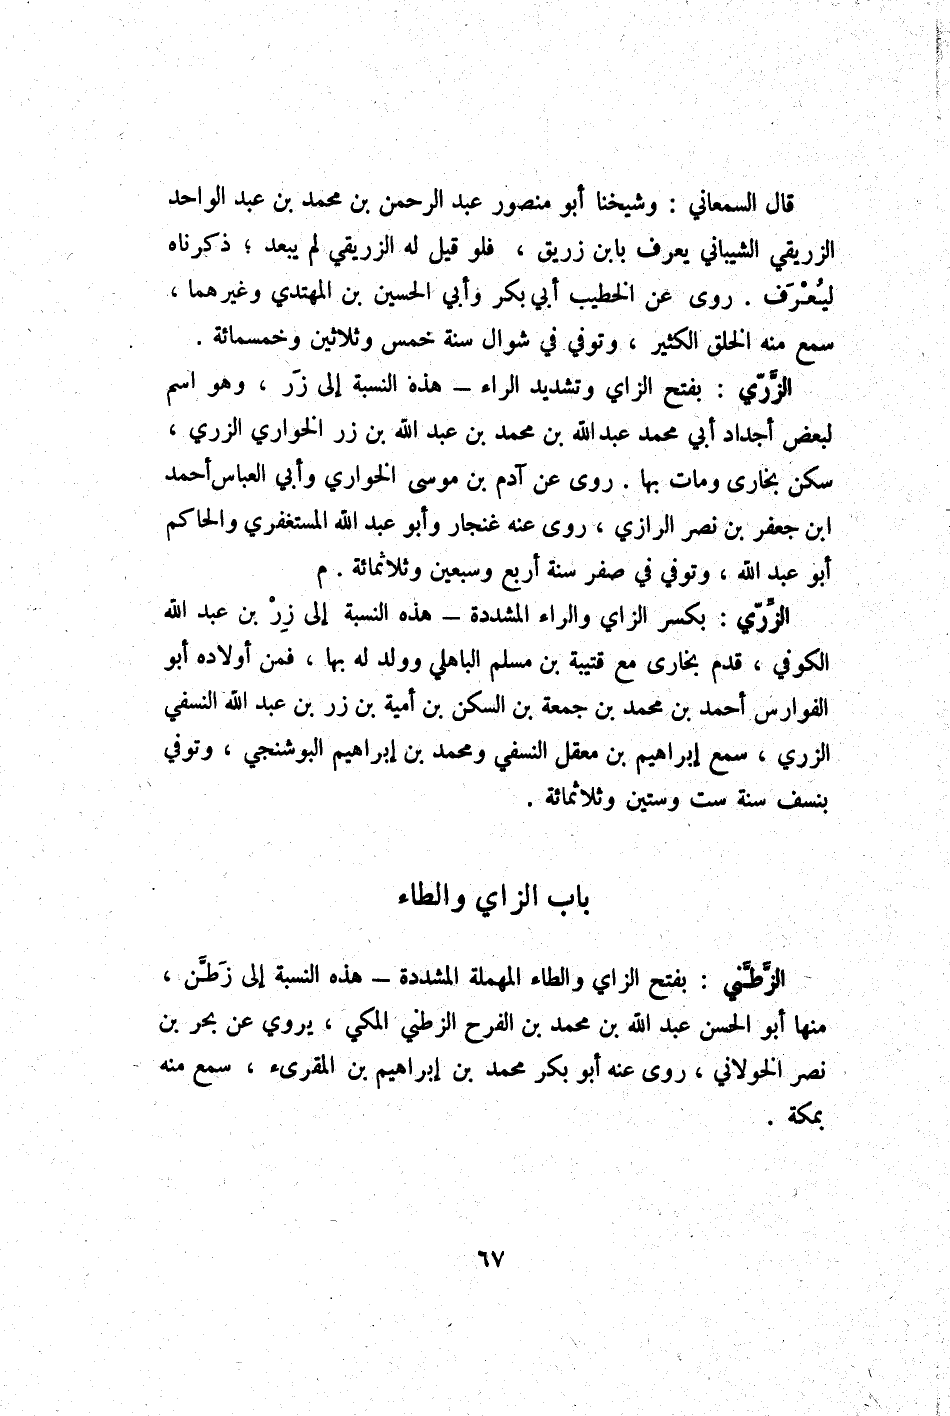 قال السمعاني : وشيخنا أبو منصور عبد الرحمن بن محمد بن عبد الواحد
الزريقي الشيباني يعرف بابن زريق ، فلو قيل له الزريقي لم يبعد ؛ ذكرناه
ليُعْرَف . روى عن الخطيب أبي بكر وأبي الحسين بن المهتدي وغيرهما ،
سمع منه الخلق الكثير ، وتوفي في شوال سنة خمس وثلاثين وخمسمائة .
الزَّرّي : بفتح الزاي وتشديد الراء – هذه النسبة إلى زَر ، وهو اسم
لبعض أجداد أبي محمد عبدالله بن محمد بن عبد الله بن زر الخواري الزري ،
سكن بخارى ومات بها . روى عن آدم بن موسى الخواري وأبي العباس أحمد
ابن جعفر بن نصر الرازي ، روى عنه غنجار وأبو عبد الله المستغفري والحاكم
أبو عبد الله ، وتوفي في صفر سنة أربع وسبعين وثلاثمائة . م
الزِّرّي : بكسر الزاي والراء المشددة – هذه النسبة إلى زِرْ بن عبد الله
الكوفي ، قدم بخارى مع قتيبة بن مسلم الباهلي وولد له بها ، فمن أولاده أبو
الفوارس أحمد بن محمد بن جمعة بن السكن بن أمية بن زر بن عبد الله النسفي
الزري ، سمع إبراهيم بن معقل النسفي ومحمد بن إبراهيم البوشنجي ، وتوفي
بنسف سنة ست وستين وثلاثمائة .
باب الزاي والطاء
الزَّطَّني : بفتح الزاي والطاء المهملة المشددة – هذه النسبة إلى زَطَّن ،
منها أبو الحسن عبد الله بن محمد بن الفرح الزطني المكي ، يروي عن بحر بن
نصر الخولاني ، روى عنه أبو بكر محمد بن إبراهيم بن المقرىء ، سمع منه
بمكة .
٦٧